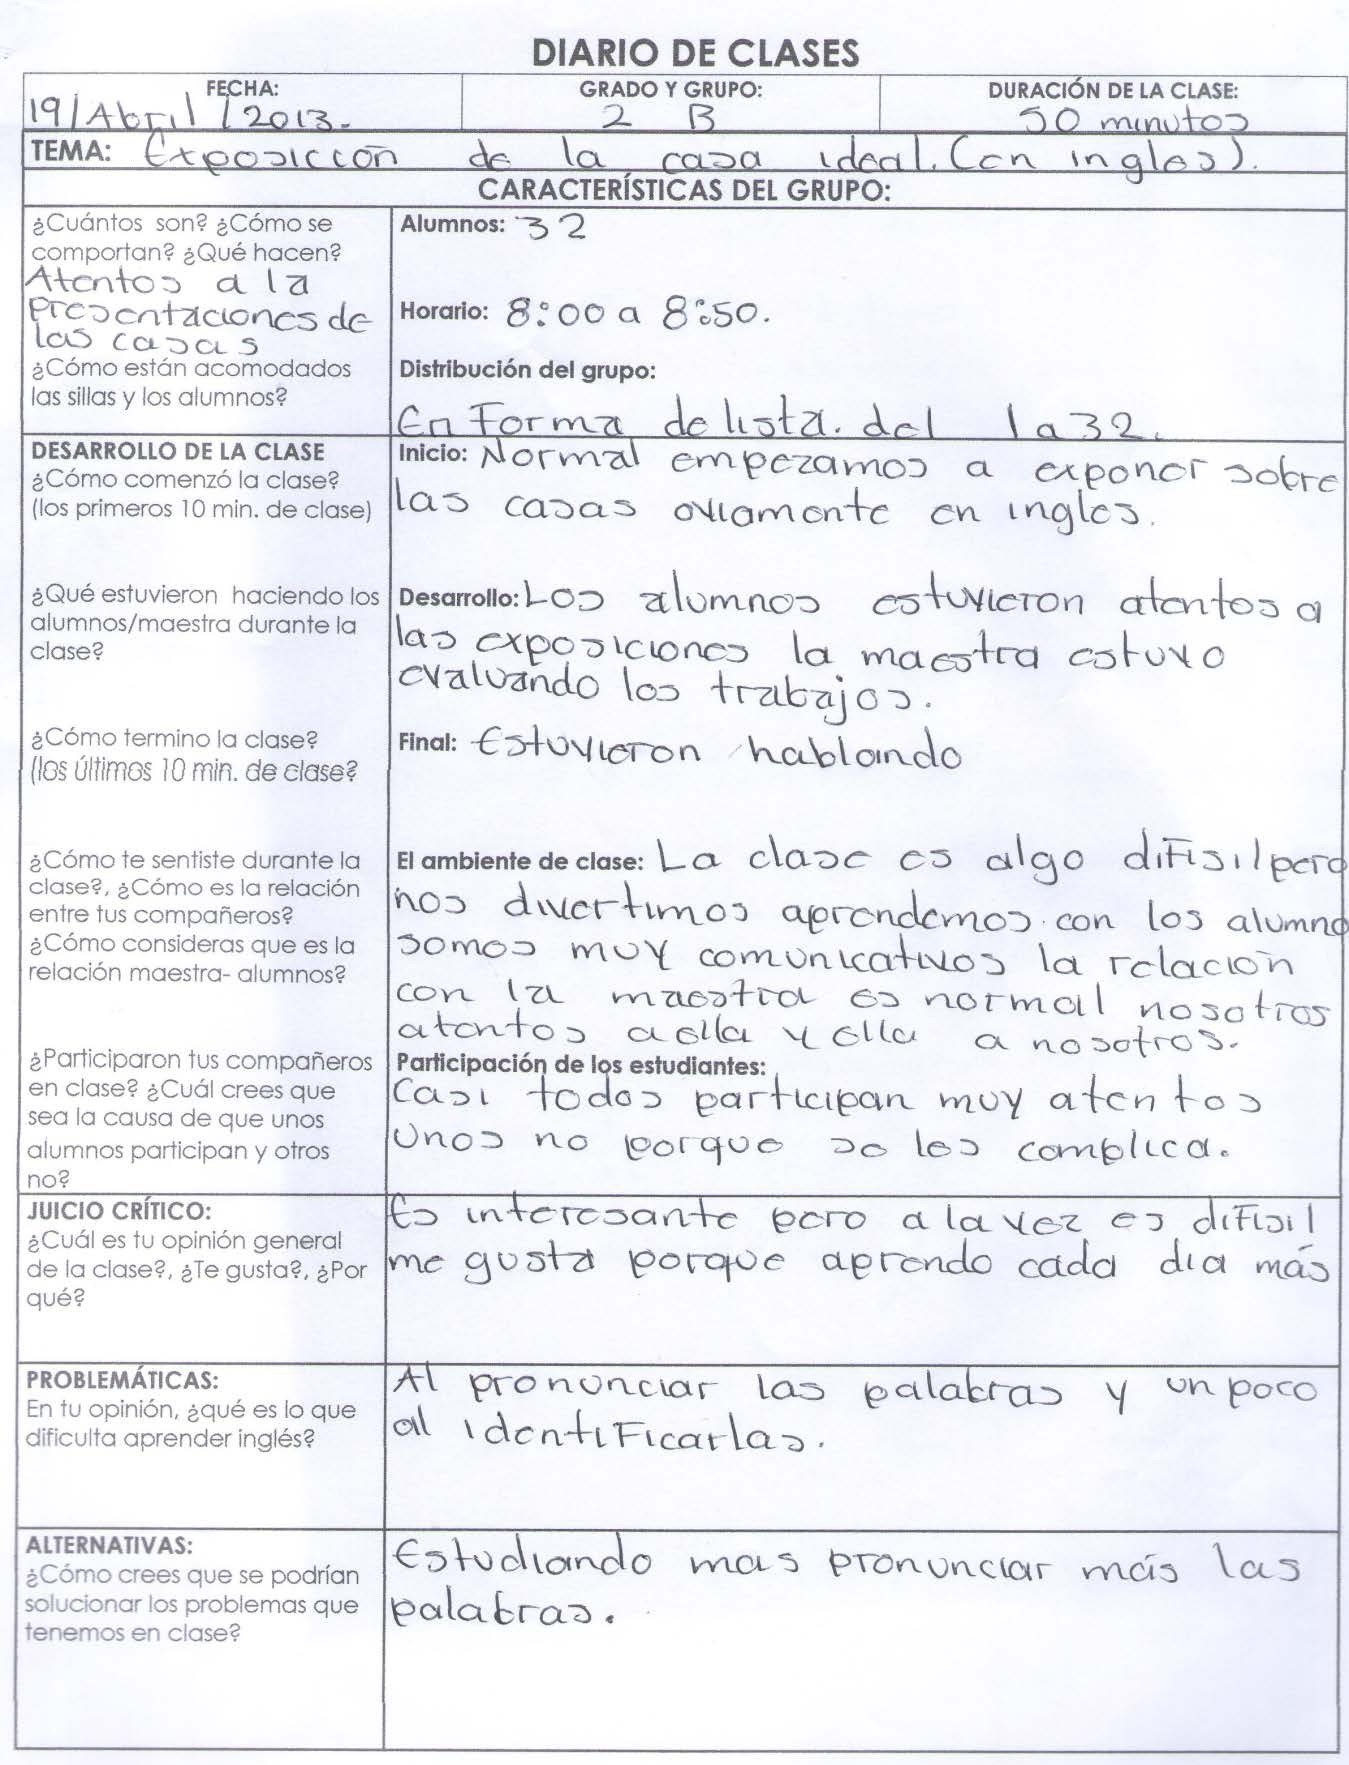 DIARIO DE CLASES
FECHA: GRADO Y GRUPO: DURACIÓN DE LA CLASE:
19/Abril/2013. 2 B 50 minutos
TEMA: Exposiccón de la casa ideal. (en ingles).
CARACTERÍSTICAS DEL GRUPO:
¿Cuántos son? ¿Cómo se
comportan? ¿Qué hacen?
Atentos a la
presentaciones de
las casas
¿Cómo están acomodados
las sillas y los alumnos?
Alumnos: 32
Horario: 8:00 a 8:50.
Distribución del grupo:
En Forma de lista. del 1 a 32.
DESARROLLO DE LA CLASE
¿Cómo comenzó la clase?
(los primeros 10 min. de clase)
Inicio: Normal empezamos a exponer sobre
las casas oviamente en ingles.
¿Qué estuvieron haciendo los
alumnos/maestra durante la
clase?
Desarrollo: Los alumnos estuvieron atentos a
las exposiciones la maestra estuvo
evaluando los trabajos.
¿Cómo termino la clase?
(los últimos 10 min. de clase?
Final: Estuvieron hablando
¿Cómo te sentiste durante la
clase?, ¿Cómo es la relación
entre tus compañeros?
¿Cómo consideras que es la
relación maestra- alumnos?
El ambiente de clase: La clase es algo difisil pero
nos divertimos aprendemos con los alumno
somos muy comunicativos la relación
con la maestra es normal nosotros
atentos a ella y ella a nosotros.
¿Participaron tus compañeros
en clase? ¿Cuál crees que
sea la causa de que unos
alumnos participan y otros
no?
Participación de los estudiantes:
Casi todos participan muy atentos
Unos no porque se les complica.
JUICIO CRÍTICO:
¿Cuál es tu opinión general
de la clase?, ¿Te gusta?, ¿Por
qué?
Es interesante pero a la vez es difisil
me gusta porque aprendo cada dia más
PROBLEMÁTICAS:
En tu opinión, ¿qué es lo que
dificulta aprender inglés?
Al pronunciar las palabras y un poco
al identiFicarlas.
ALTERNATIVAS:
¿Cómo crees que se podrían
solucionar los problemas que
tenemos en clase?
Estudiando mas pronunciar más las
palabras.